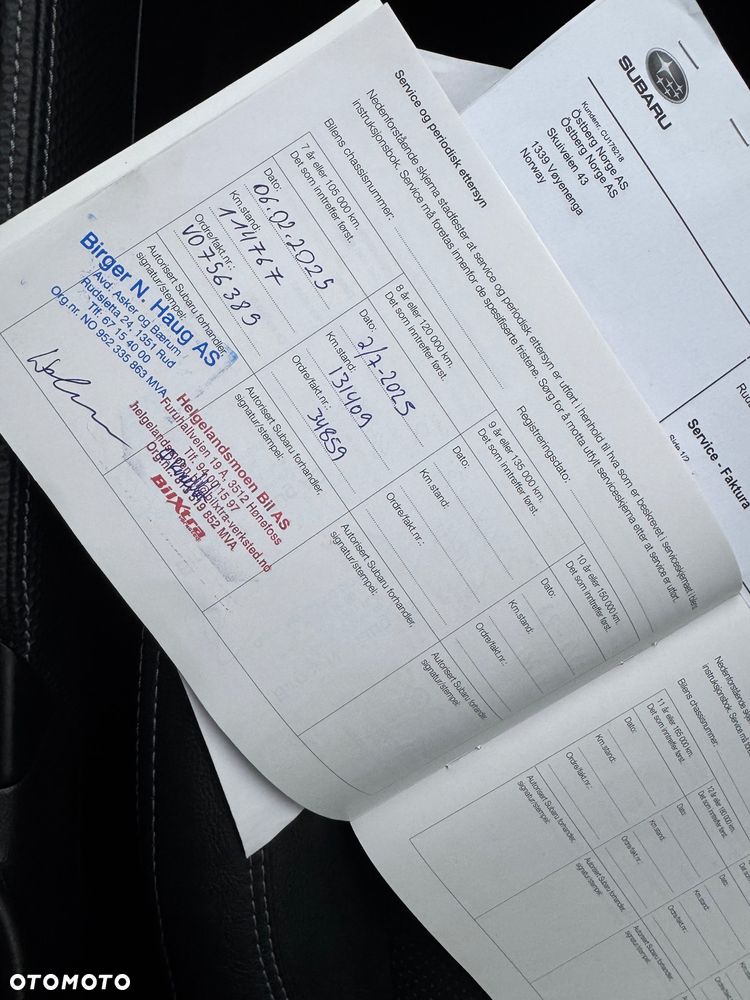 Service og periodisk ettersyn
Nedenforstående skjema stadfester at service og periodisk ettersyn er utført i henhold til hva som er beskrevet i serviceskjemaet i bles
instruksjonsbok. Service må foretas innenfor de spesifiserte fristene. Sørg for å motta utfylt serviceskjema etter at service er utført.
Bilens chassisnummer:
Registreringsdato:
7 år eller 105 000 km.
Det som inntreffer først.
Dato:
06.02.2025
Km.stand:
114767
Ordre/fakt.nr.:
VO756389
Autorisert Subaru forhandler,
signatur/stempel:
Birger N. Haug AS
Avd. Asker og Bærum
Rudsletta 24, 1351 Rud
Tlf: 67 15 40 00
Org.nr. NO 952 335 863 MVA
8 år eller 120 000 km.
Det som inntreffer først.
Dato:
2/7-2025
Km.stand:
131409
Ordre/fakt.nr.:
34859
Autorisert Subaru forhandler,
signatur/stempel:
Helgelandsmoen Bil AS
Furuhallveien 19 A, 3512 Hønefoss
Tlf. 94 00 15 97
BilXtra
9 år eller 135 000 km.
Det som inntreffer først.
Dato:
Km.stand:
Ordre/fakt.nr.:
Autorisert Subaru forhandler,
signatur/stempel:
10 år eller 150 000 km.
Det som inntreffer først.
Dato:
Km.stand:
Ordre/fakt.nr.:
Autorisert Subaru forhandler,
signatur/stempel:
SUBARU
Kundenr. CU178218
Østberg Norge AS
Østberg Norge AS
Skuiveien 43
1339 Vøyenenga
Norway
Service - Faktura
Side 1/2
Nedenforstående
instruksjonsbok. Service må
Bilens chassisnummer:
11 år eller 165 000 km.
Det som inntreffer først.
Dato:
Km.stand:
Ordre/fakt.nr.:
Autorisert Subaru forhandler,
signatur/stempel:
12 år eller 180 000 km.
Det som inntreffer først.
Dato:
Km.stand:
Ordre/fakt.nr.:
Autorisert Subaru forhandler,
signatur/stempel:
Km.stand:
Ordre/fakt.nr.:
OTOMOTO